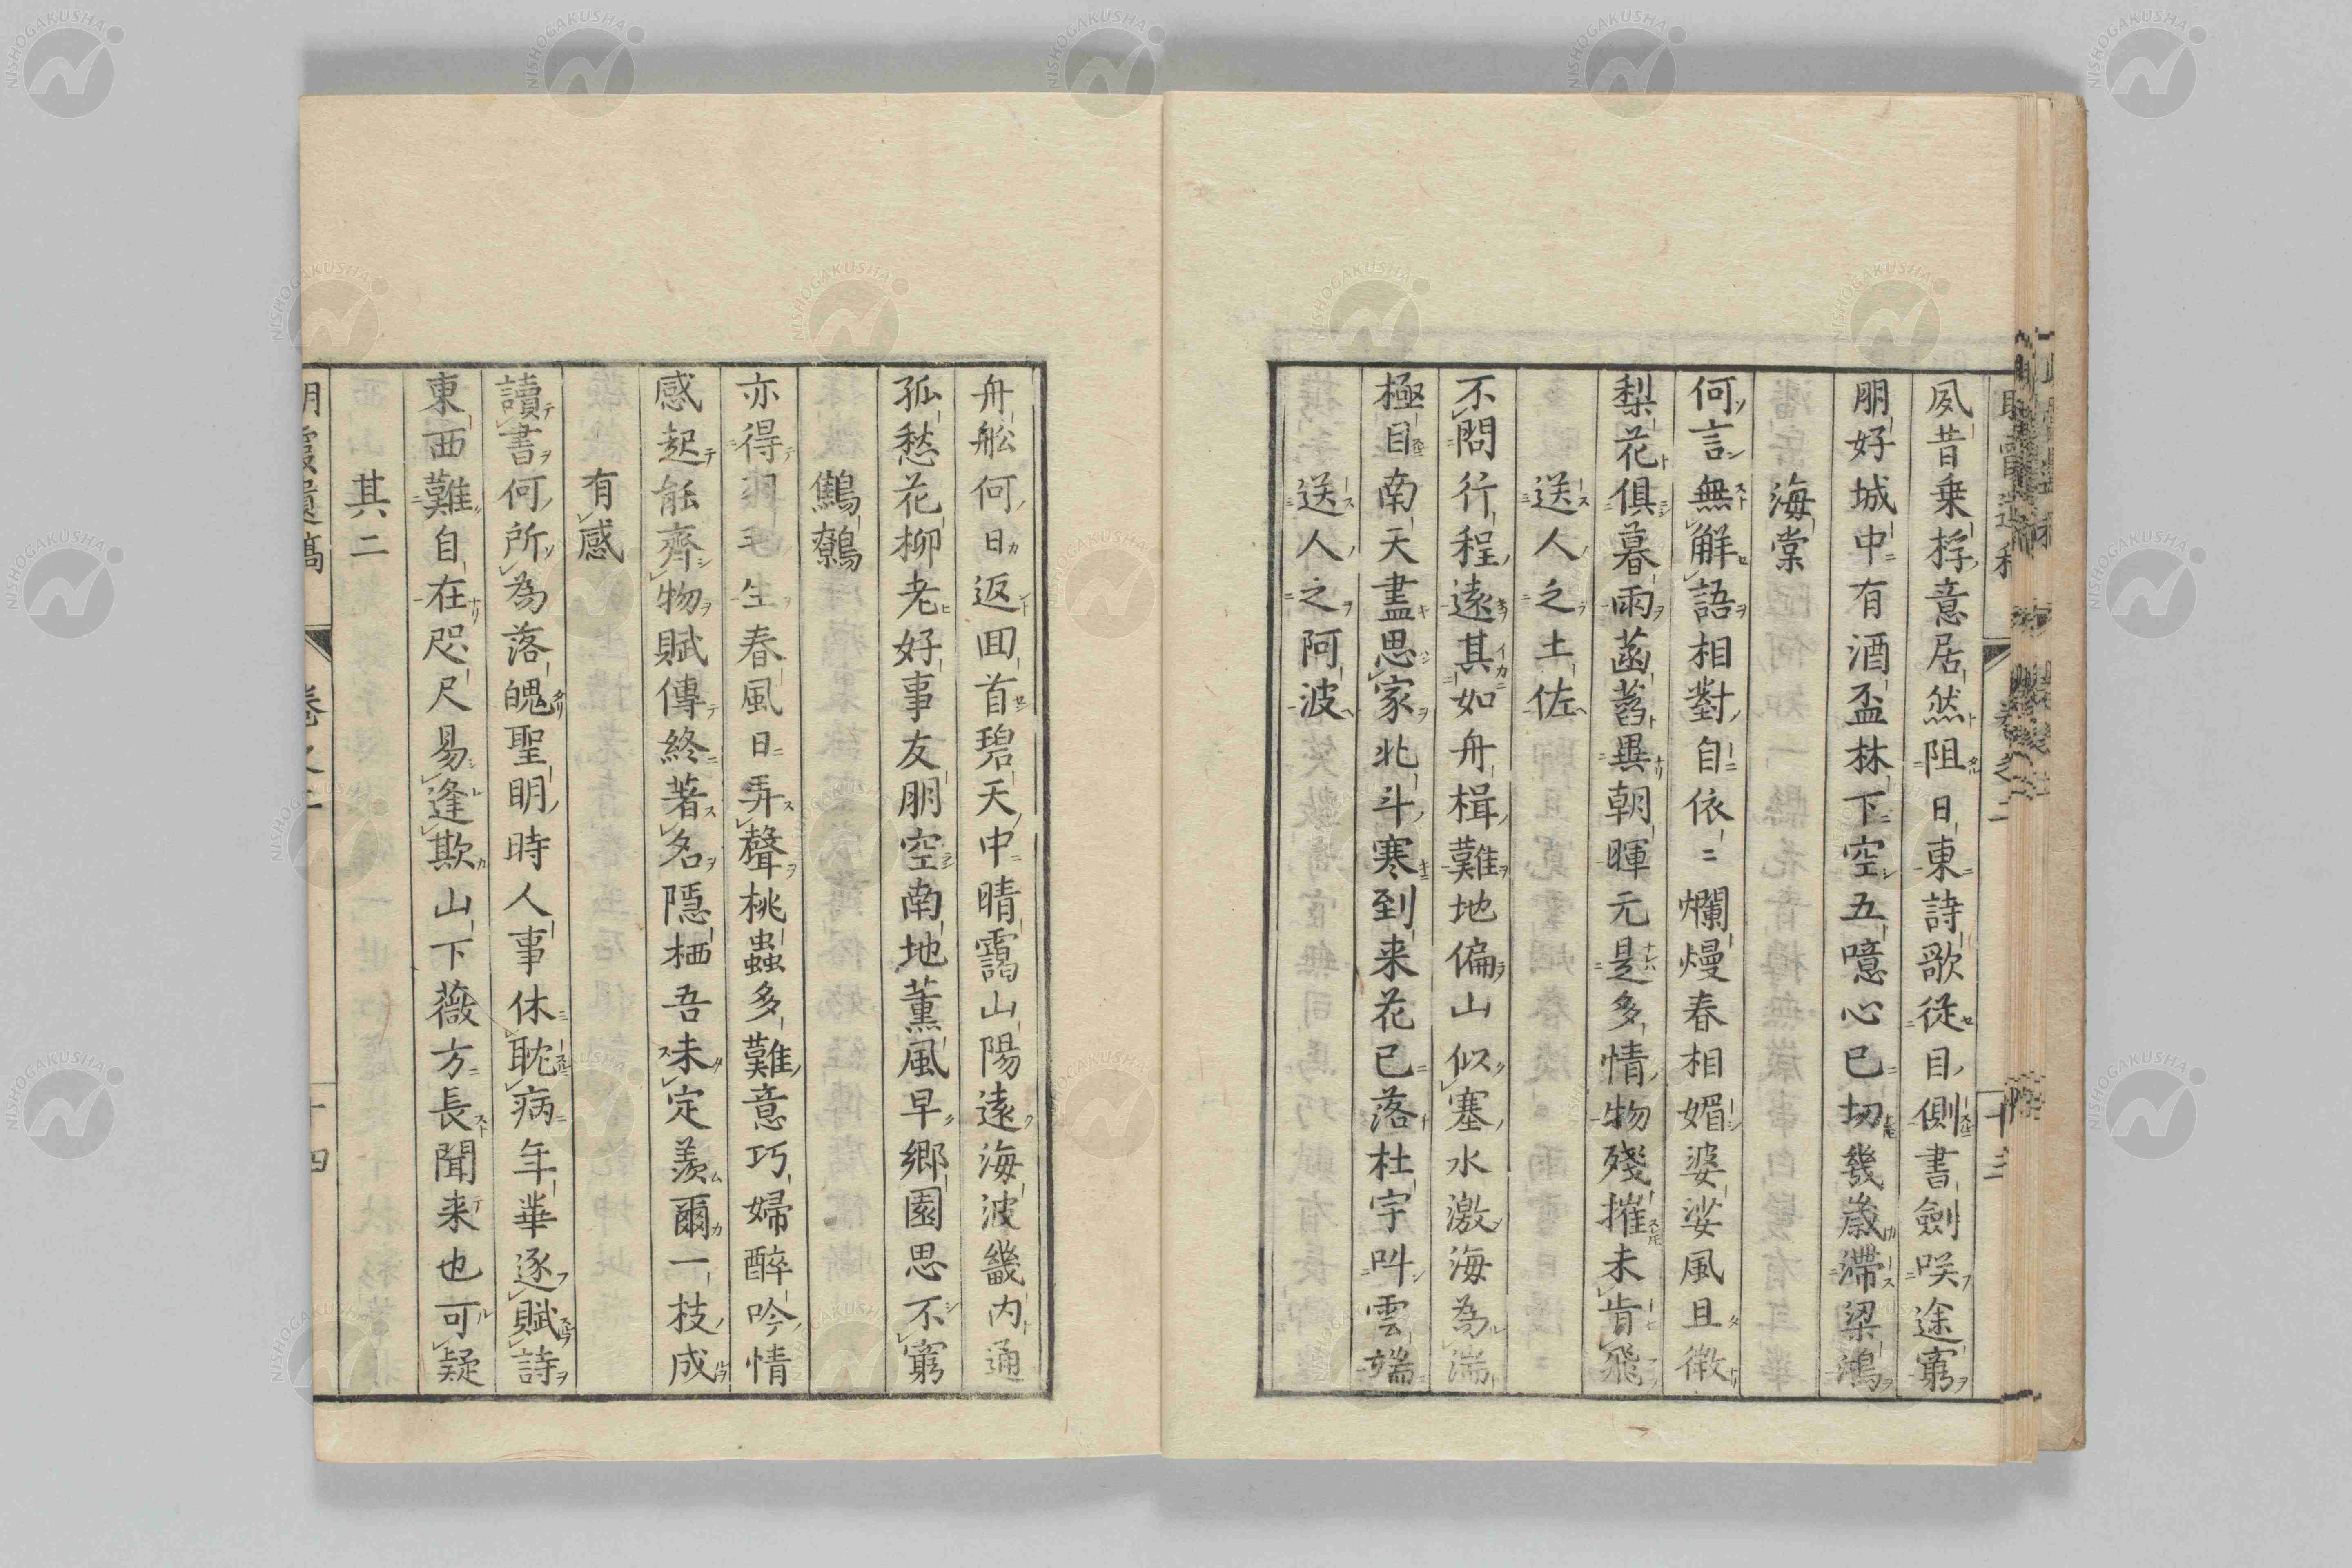 夙昔乗桴意居然阻日東詩歌從目側書劍咲途窮
朋好城中有酒盃林下空五噫心已切幾歳滯梁鴻
海棠
何言無解語相對自依〻爛熳春相媚婆娑風且微
梨花俱暮雨菡萏異朝暉元是多情物殘摧未肯飛
送人之土佐
不問行程遠其如舟楫難地偏山似塞水激海為湍
極目南天盡思家北斗寒到来花已落杜宇叫雲端
送人之阿波
舟舩何日返回首碧天中晴靄山陽遠海波畿内通
孤愁花柳老好事友朋空南地薫風早郷園思不窮
鷦鷯
亦得羽毛生春風日弄聲桃蟲多難意巧婦醉吟情
感起能齊物賦傳終著名隱栖吾未定羨爾一枝成
有感
讀書何所為落魄聖明時人事休耽病年華逐賦詩
東西難自在咫尺易逢欺山下薇方長聞来也可疑
其二
遺稿 卷之二 十四
NISHOGAKUSHA